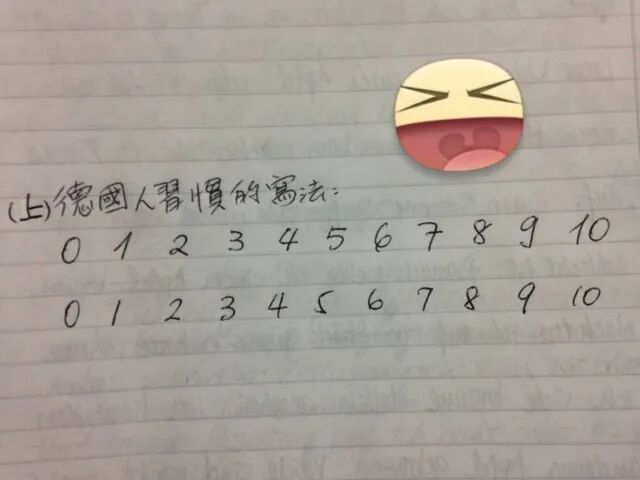 (上)德國人習慣的寫法:
0 1 2 3 4 5 6 7 8 9 10
0 1 2 3 4 5 6 7 8 9 10